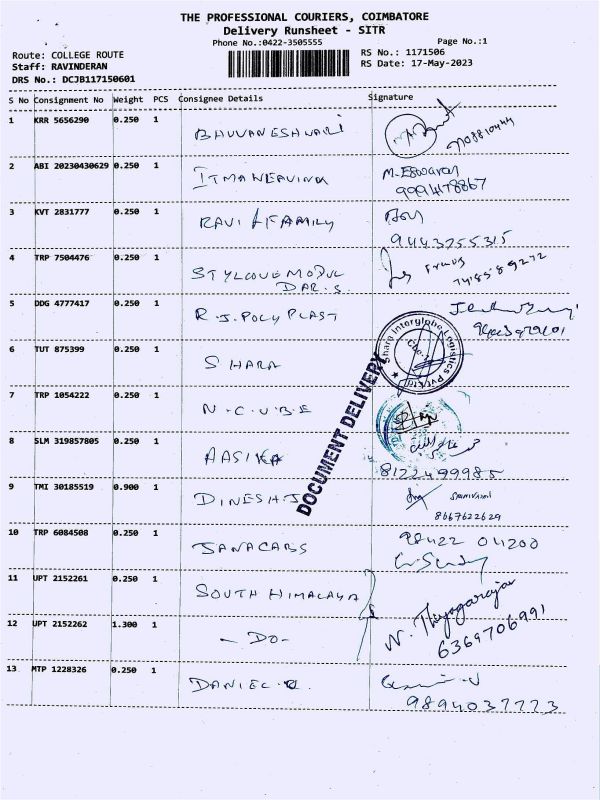 THE PROFESSIONAL COURIERS, COIMBATORE
Delivery Runsheet - SITR
Phone No.:0422-3505555 Page No.:1
Route: COLLEGE ROUTE RS No.: 1171506
Staff: RAVINDERAN RS Date: 17-May-2023
DRS No.: DCJB117150601
S No Consignment No Weight PCS Consignee Details Signature
1 KRR 5656290 0.250 1 BHUVANESHWARI
2 ABI 20230430629 0.250 1 ITMA WEAVING M. Eswaran
9994178867
3 KVT 2831777 0.250 1 RAVI & FAMILY
9443255315
4 TRP 7504476 0.250 1
DAR.S.
5 DDG 4777417 0.250 1 R.J. POLY PLAST
6 TUT 875399 0.250 1 SHARA
Shara Interglobe Logistics Pvt Ltd
Cbe-
DOCUMENT DELIVERY
7 TRP 1054222 0.250 1 N.C.U.B.E
8 SLM 319857805 0.250 1 AASIKA
8122499985
9 TMI 30185519 0.900 1 DINESH.J
8667622629
10 TRP 6084508 0.250 1 JANACABS 98422 04200
11 UPT 2152261 0.250 1 SOUTH HIMALAYA
12 UPT 2152262 1.300 1 - DO - N. Thiyagarajan
6369706991
13 MTP 1228326 0.250 1 DANIEL
9894037773